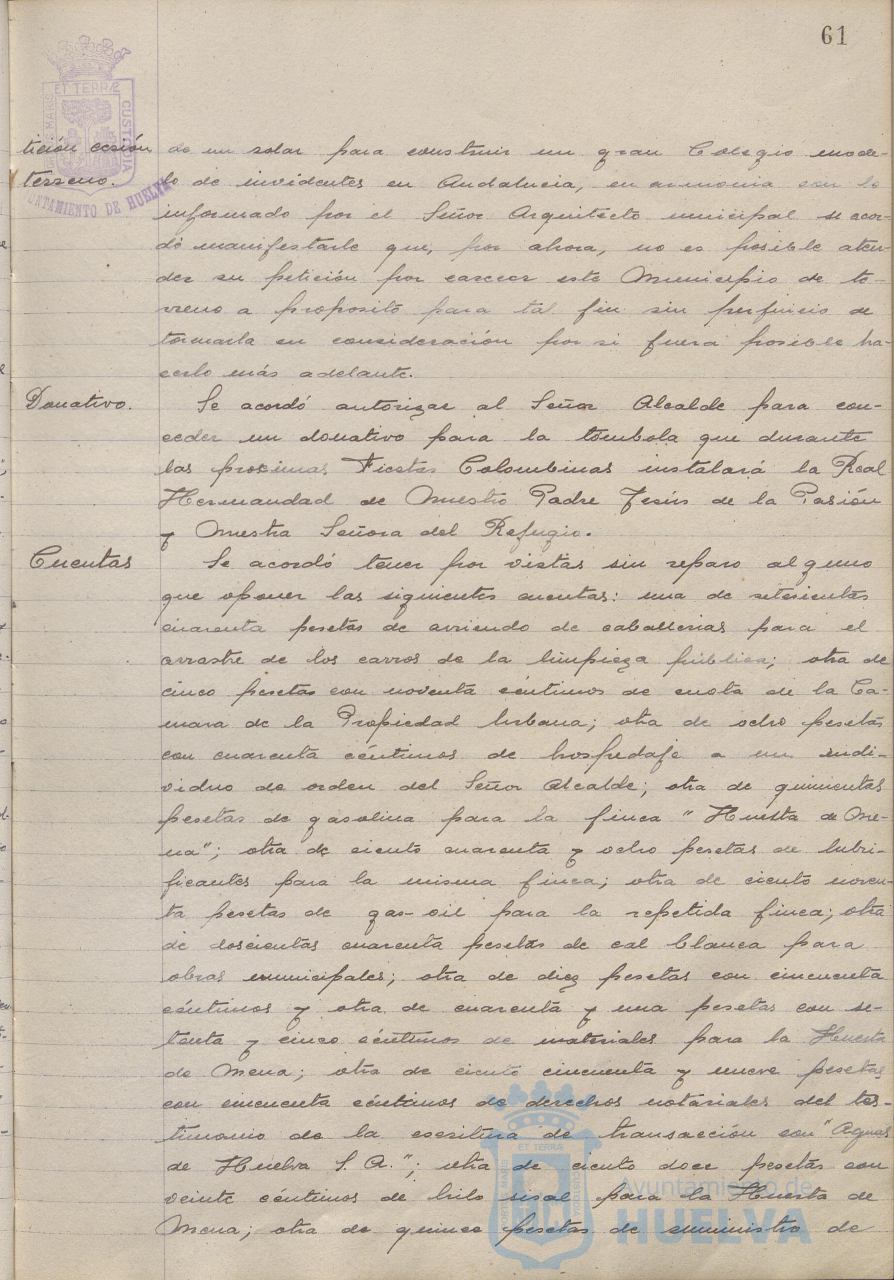 61
PORTUS MARIS ET TERRÆ CUSTODIA
AYUNTAMIENTO DE HUELVA
tición cesión
terreno.
de un solar para construir un gran Colegio mode-
lo de invidentes en Andalucia, en armonia con lo
informado por el Señor Arquitecto municipal se acor-
dó manifestarle que, por ahora, no es posible aten-
der su petición por carecer este Municipio de te-
rreno a proposito para tal fin sin perjuicio de
tomarla en consideración por si fuera posible ha-
cerlo más adelante.
Donativo.
Se acordó autorizar al Señor Alcalde para con-
ceder un donativo para la tómbola que durante
las proximas Fiestas Colombinas instalará la Real
Hermandad de Nuestro Padre Jesús de la Pasión
y Nuestra Señora del Refugio.
Cuentas
Se acordó tener por vistas sin reparo alguno
que oponer las siguientes cuentas: una de setecientas
cuarenta pesetas de arriendo de caballerias para el
arrastre de los carros de la limpieza pública; otra de
cinco pesetas con noventa céntimos de cuota de la Ca-
mara de la Propiedad Urbana; otra de ocho pesetas
con cuarenta céntimos de hospedaje a un indi-
viduo de orden del Señor Alcalde; otra de quinientas
pesetas de gasolina para la finca "Huerta de Me-
na"; otra de ciento cuarenta y ocho pesetas de lubri-
ficantes para la misma finca; otra de ciento noven-
ta pesetas de gas-oil para la repetida finca; otra
de doscientas cuarenta pesetas de cal blanca para
obras municipales; otra de diez pesetas con cincuenta
céntimos y otra de cuarenta y una pesetas con se-
tenta y cinco céntimos de materiales para la Huerta
de Mena; otra de ciento cincuenta y nueve pesetas
con cincuenta céntimos de derechos notariales del tes-
timonio de la escritura de transacción con "Aguas
de Huelva S. A."; otra de ciento doce pesetas con
veinte céntimos de hilo sisal para la Huerta de
Mena; otra de quince pesetas de suministro de
PORTUS MARIS ET TERRÆ CUSTODIA
Ayuntamiento de
HUELVA